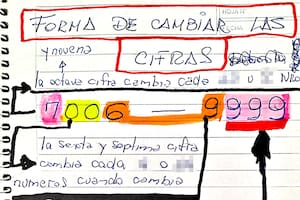 FORMA DE CAMBIAR LAS
CIFRAS
y novena
la octava cifra cambia cada o
7 006 — 9 999
la sexta y septima cifra
cambia cada o
numeros cuando cambia